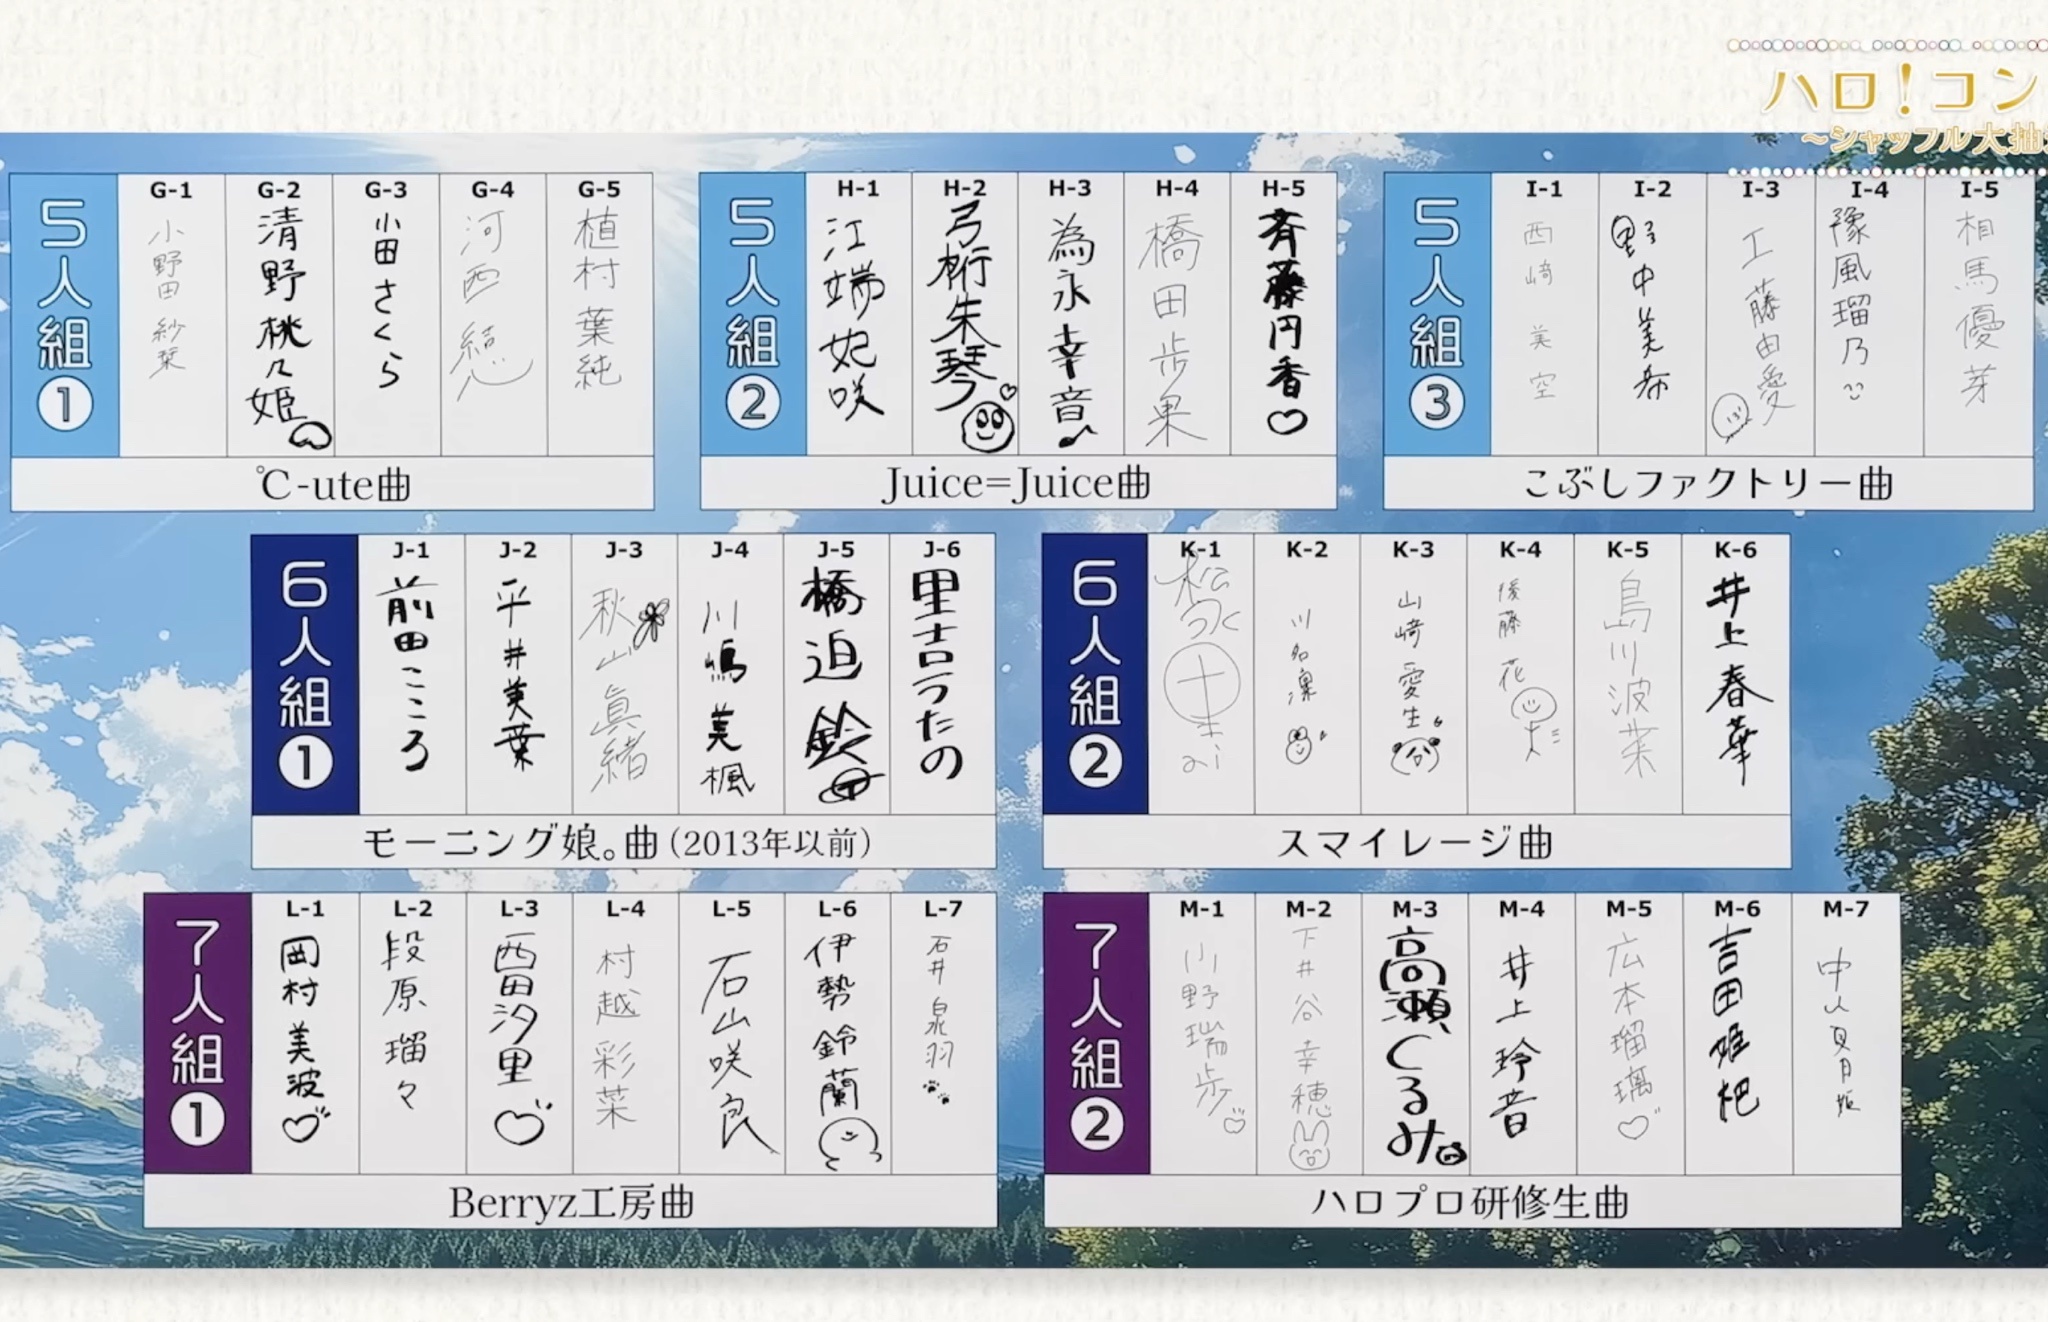 ハロ!コン
~シャッフル大抽
5人組①
G-1 小野田紗栞
G-2 清野桃々姫
G-3 小田さくら
G-4 河西結心
G-5 植村葉純
℃-ute曲
5人組②
H-1 江端妃咲
H-2 弓桁朱琴
H-3 為永幸音
H-4 橋田歩果
H-5 斉藤円香
Juice=Juice曲
5人組③
I-1 西﨑美空
I-2 野中美希
I-3 工藤由愛
I-4 豫風瑠乃
I-5 相馬優芽
こぶしファクトリー曲
6人組①
J-1 前田こころ
J-2 平井美葉
J-3 秋山眞緒
J-4 川嶋美楓
J-5 橋迫鈴
J-6 里吉うたの
モーニング娘。曲(2013年以前)
6人組②
K-1 松永
K-2 川名凜
K-3 山﨑愛生
K-4 後藤花
K-5 島川波菜
K-6 井上春華
スマイレージ曲
7人組①
L-1 岡村美波
L-2 段原瑠々
L-3 西田汐里
L-4 村越彩菜
L-5 石山咲良
L-6 伊勢鈴蘭
L-7 石井泉羽
Berryz工房曲
7人組②
M-1 川野瑞歩
M-2 下井谷幸穂
M-3 高瀬くるみ
M-4 井上玲音
M-5 広本瑠璃
M-6 吉田姫杷
M-7 中山夏月姫
ハロプロ研修生曲